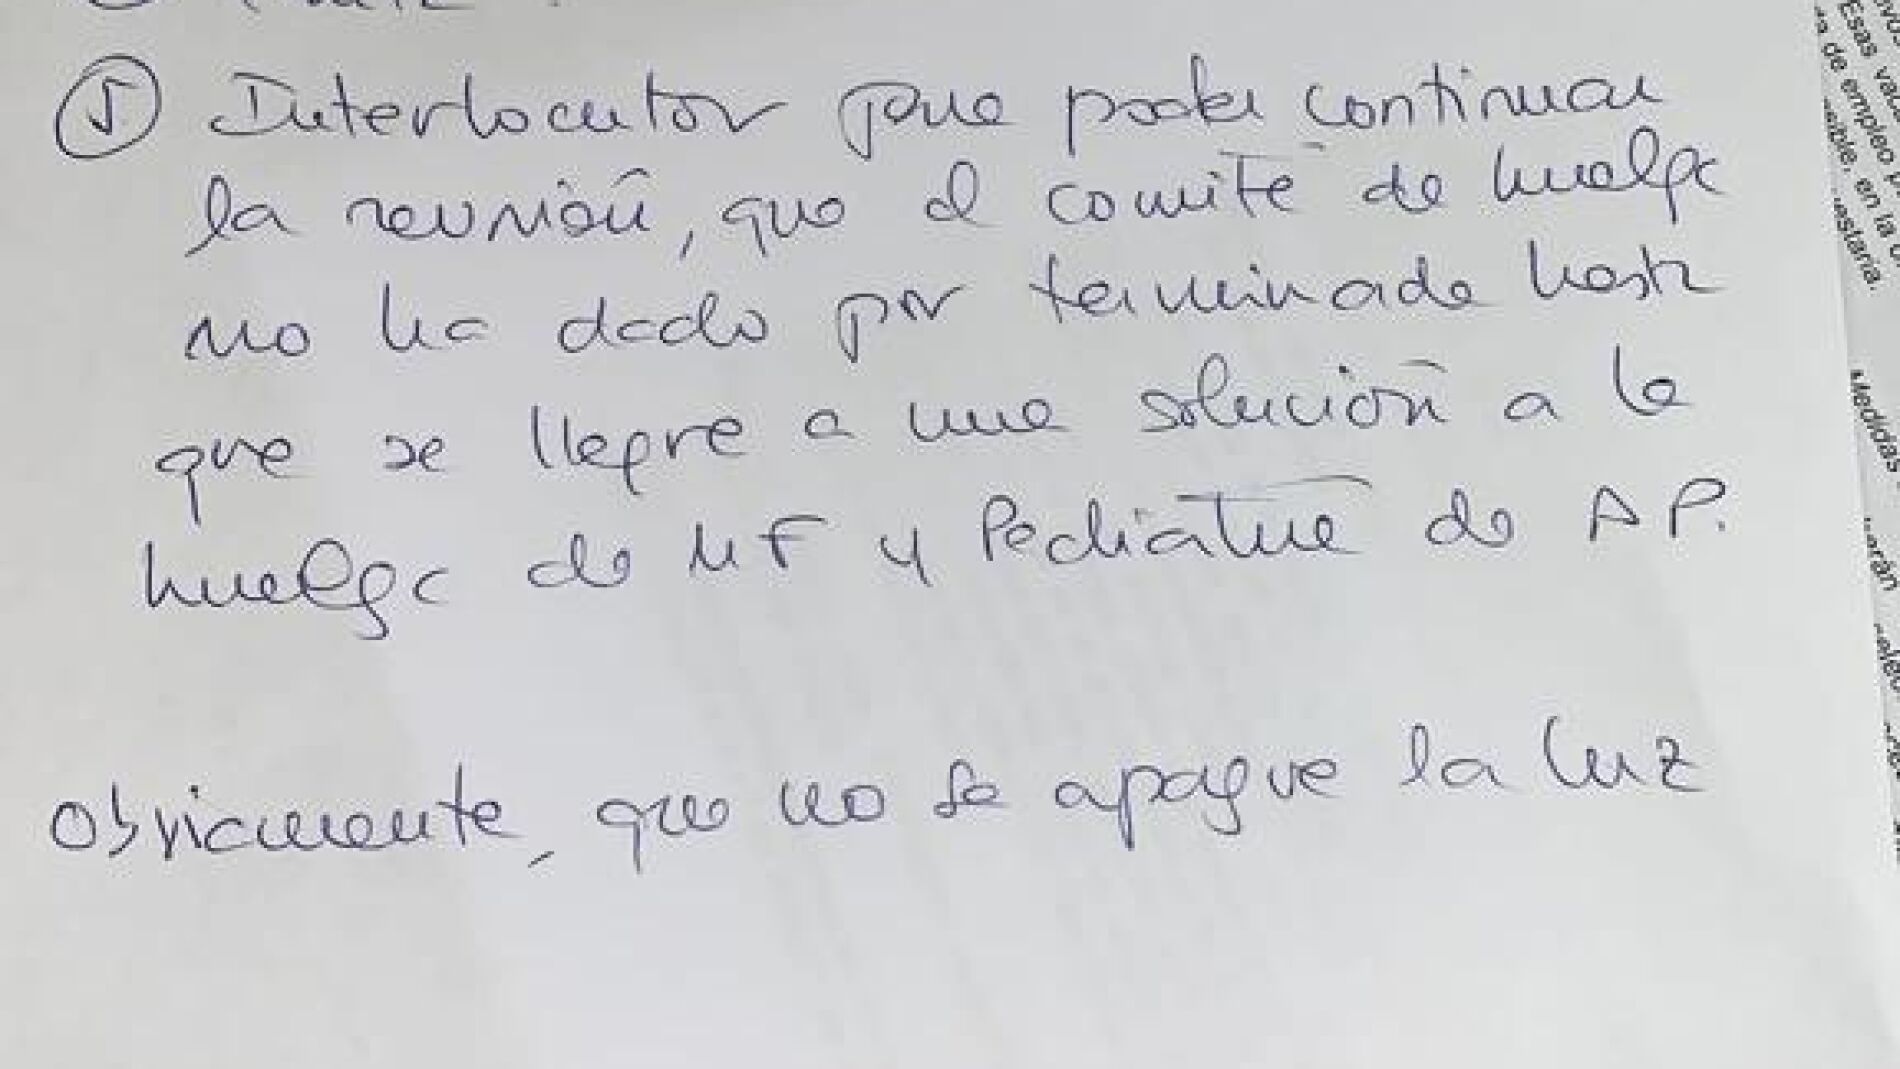 ⑤ Interlocutor para poder continuar
la reunión, que el comité de huelga
no ha dado por terminada hasta
que se llegue a una solución a la
huelga de MF y Pediatría de AP.
Obviamente, que no se apague la luz
Esas
de empleo
en la
Medidas